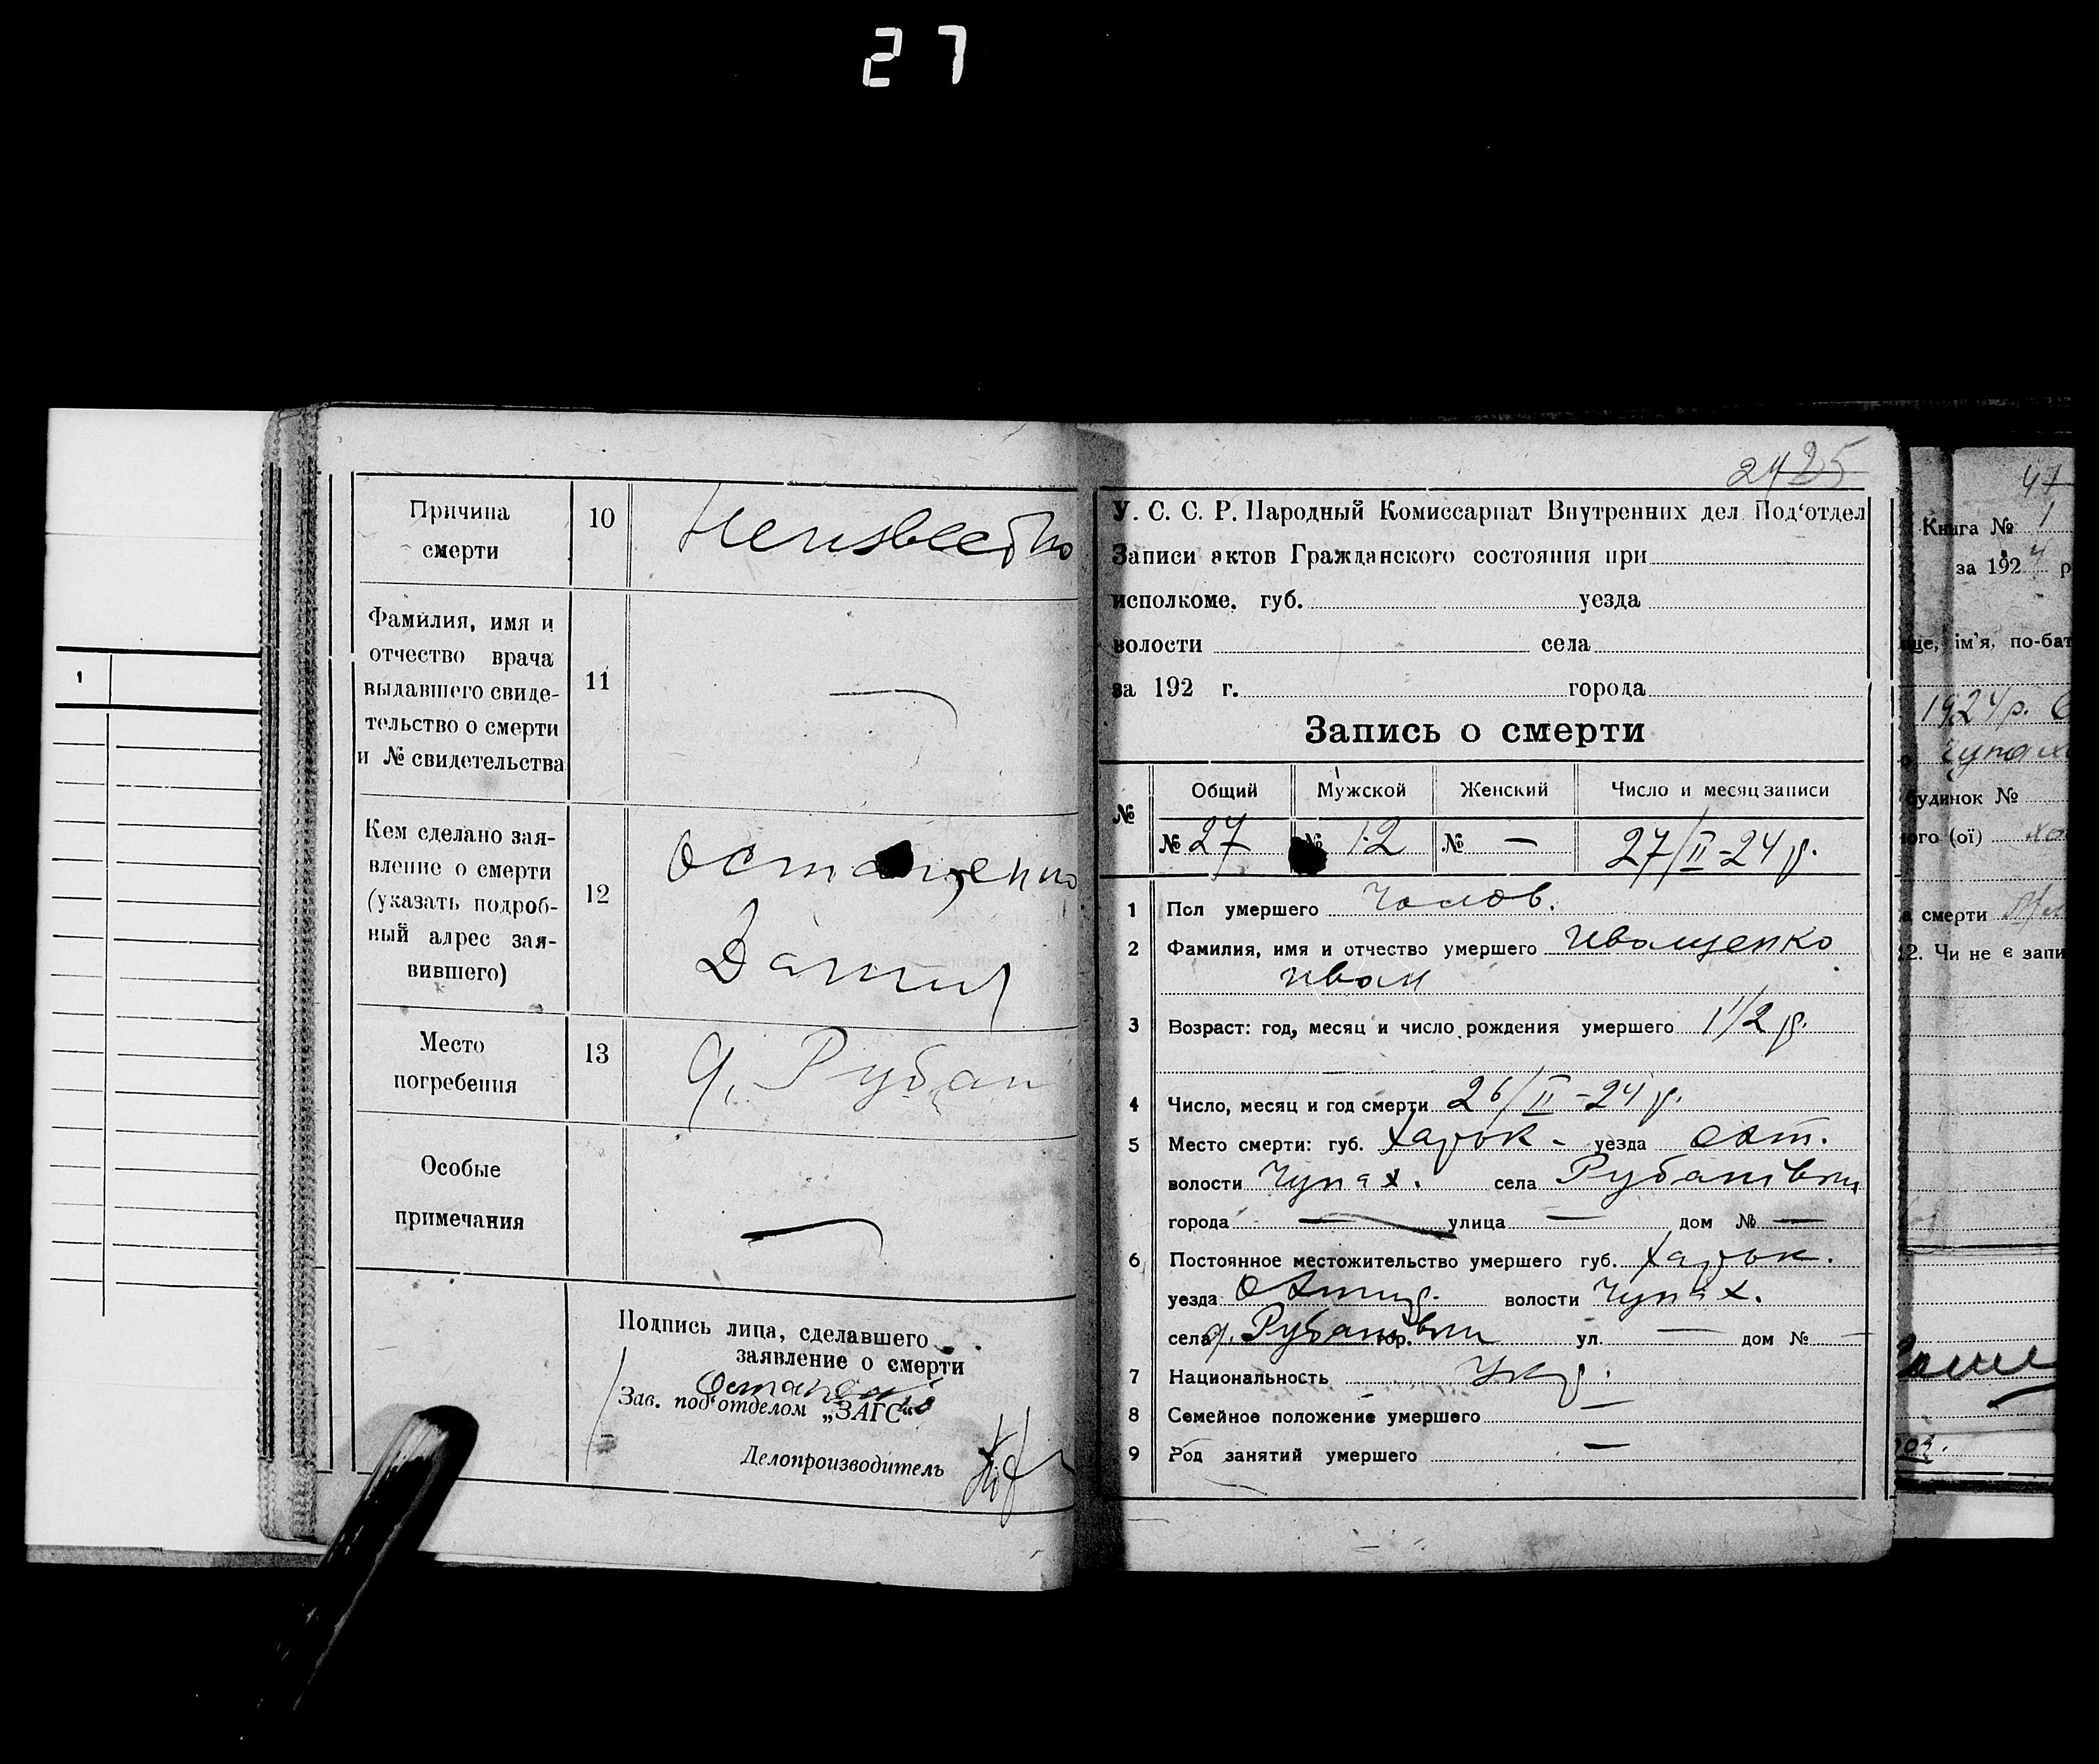 27
1
Причина смерти 10 Неизвестно
Фамилия, имя и
отчество врача
выдавшего свиде-
тельство о смерти
и № свидетельства 11 —
Кем сделано зая-
вление о смерти
(указать подроб-
ный адрес зая-
вившего) 12
Данил
Место погребения 13 Рубан
Особые примечания —
Подпись лица, сделавшего
заявление о смерти
Зав. под'отделом „ЗАГС“
Делопроизводитель
24 25
У. С. С. Р. Народный Комиссариат Внутренних дел Под'отдел
Записи актов Гражданского состояния при
исполкоме. губ. уезда
волости села
за 192 г. города
Запись о смерти
№ Общий Мужской Женский Число и месяц записи
№ 27 № 12 № — 27/II-24 р.
1 Пол умершего Чолов.
2 Фамилия, имя и отчество умершего Иващенко
Иван
3 Возраст: год, месяц и число рождения умершего 1 1/2 р.
4 Число, месяц и год смерти 26/II-24 р.
5 Место смерти: губ. Харьк- уезда Охт.
волости Чупах. села Рубанівки
города — улица — дом № —
6 Постоянное местожительство умершего губ. Харьк.
уезда Охтир. волости Чупах.
села Рубанівки гор. ул. — дом № —
7 Национальность Укр.
8 Семейное положение умершего —
9 Род занятий умершего —
47
Книга № 1
за 1924 р
ще, ім'я, по-бат
1924 р.
будинок №
ого (ої)
а смерти
2. Чи не є запи